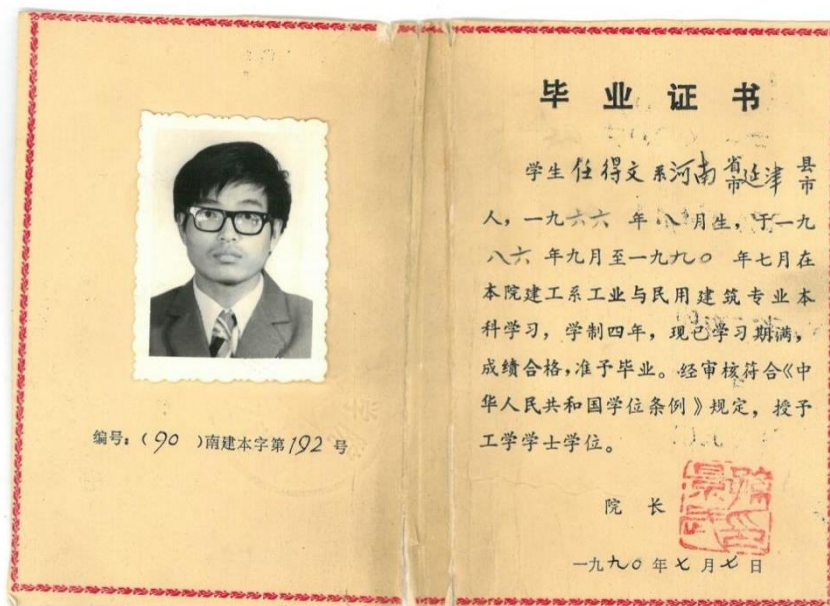 编号：(90)南建本字第192号
毕业证书
学生任得文系河南省市延津县市
人，一九六六年八月生，于一九
八六年九月至一九九〇年七月在
本院建工系工业与民用建筑专业本
科学习，学制四年，现已学习期满，
成绩合格，准予毕业。经审核符合《中
华人民共和国学位条例》规定，授予
工学学士学位。
院长
一九九〇年七月七日